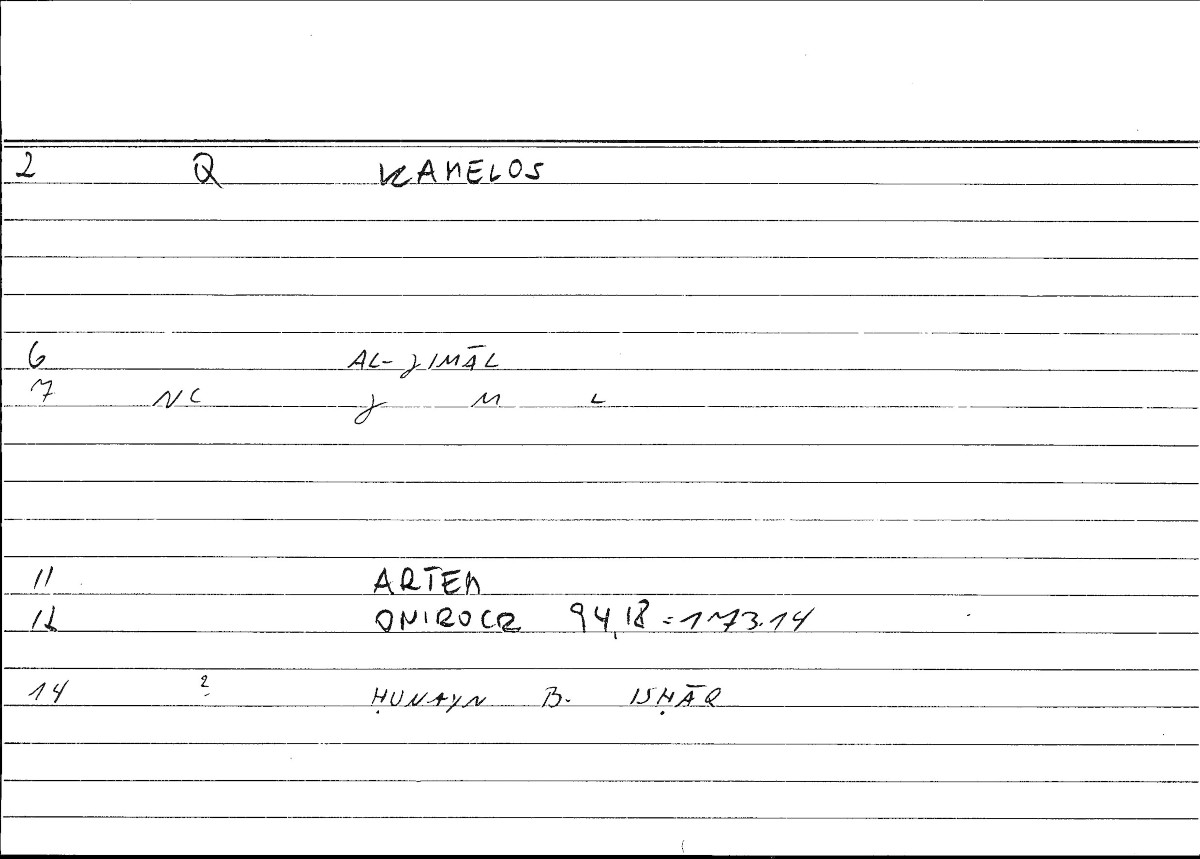 2 Q KAMELOS
6 AL-JIMĀL
7 NC J M L
11 ARTEM
12 ONIROCR 94,18 = 173.14
14 ? ḤUNAYN B. ISḤĀQ